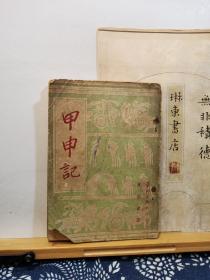 甲申記
無非積德
琳東書店